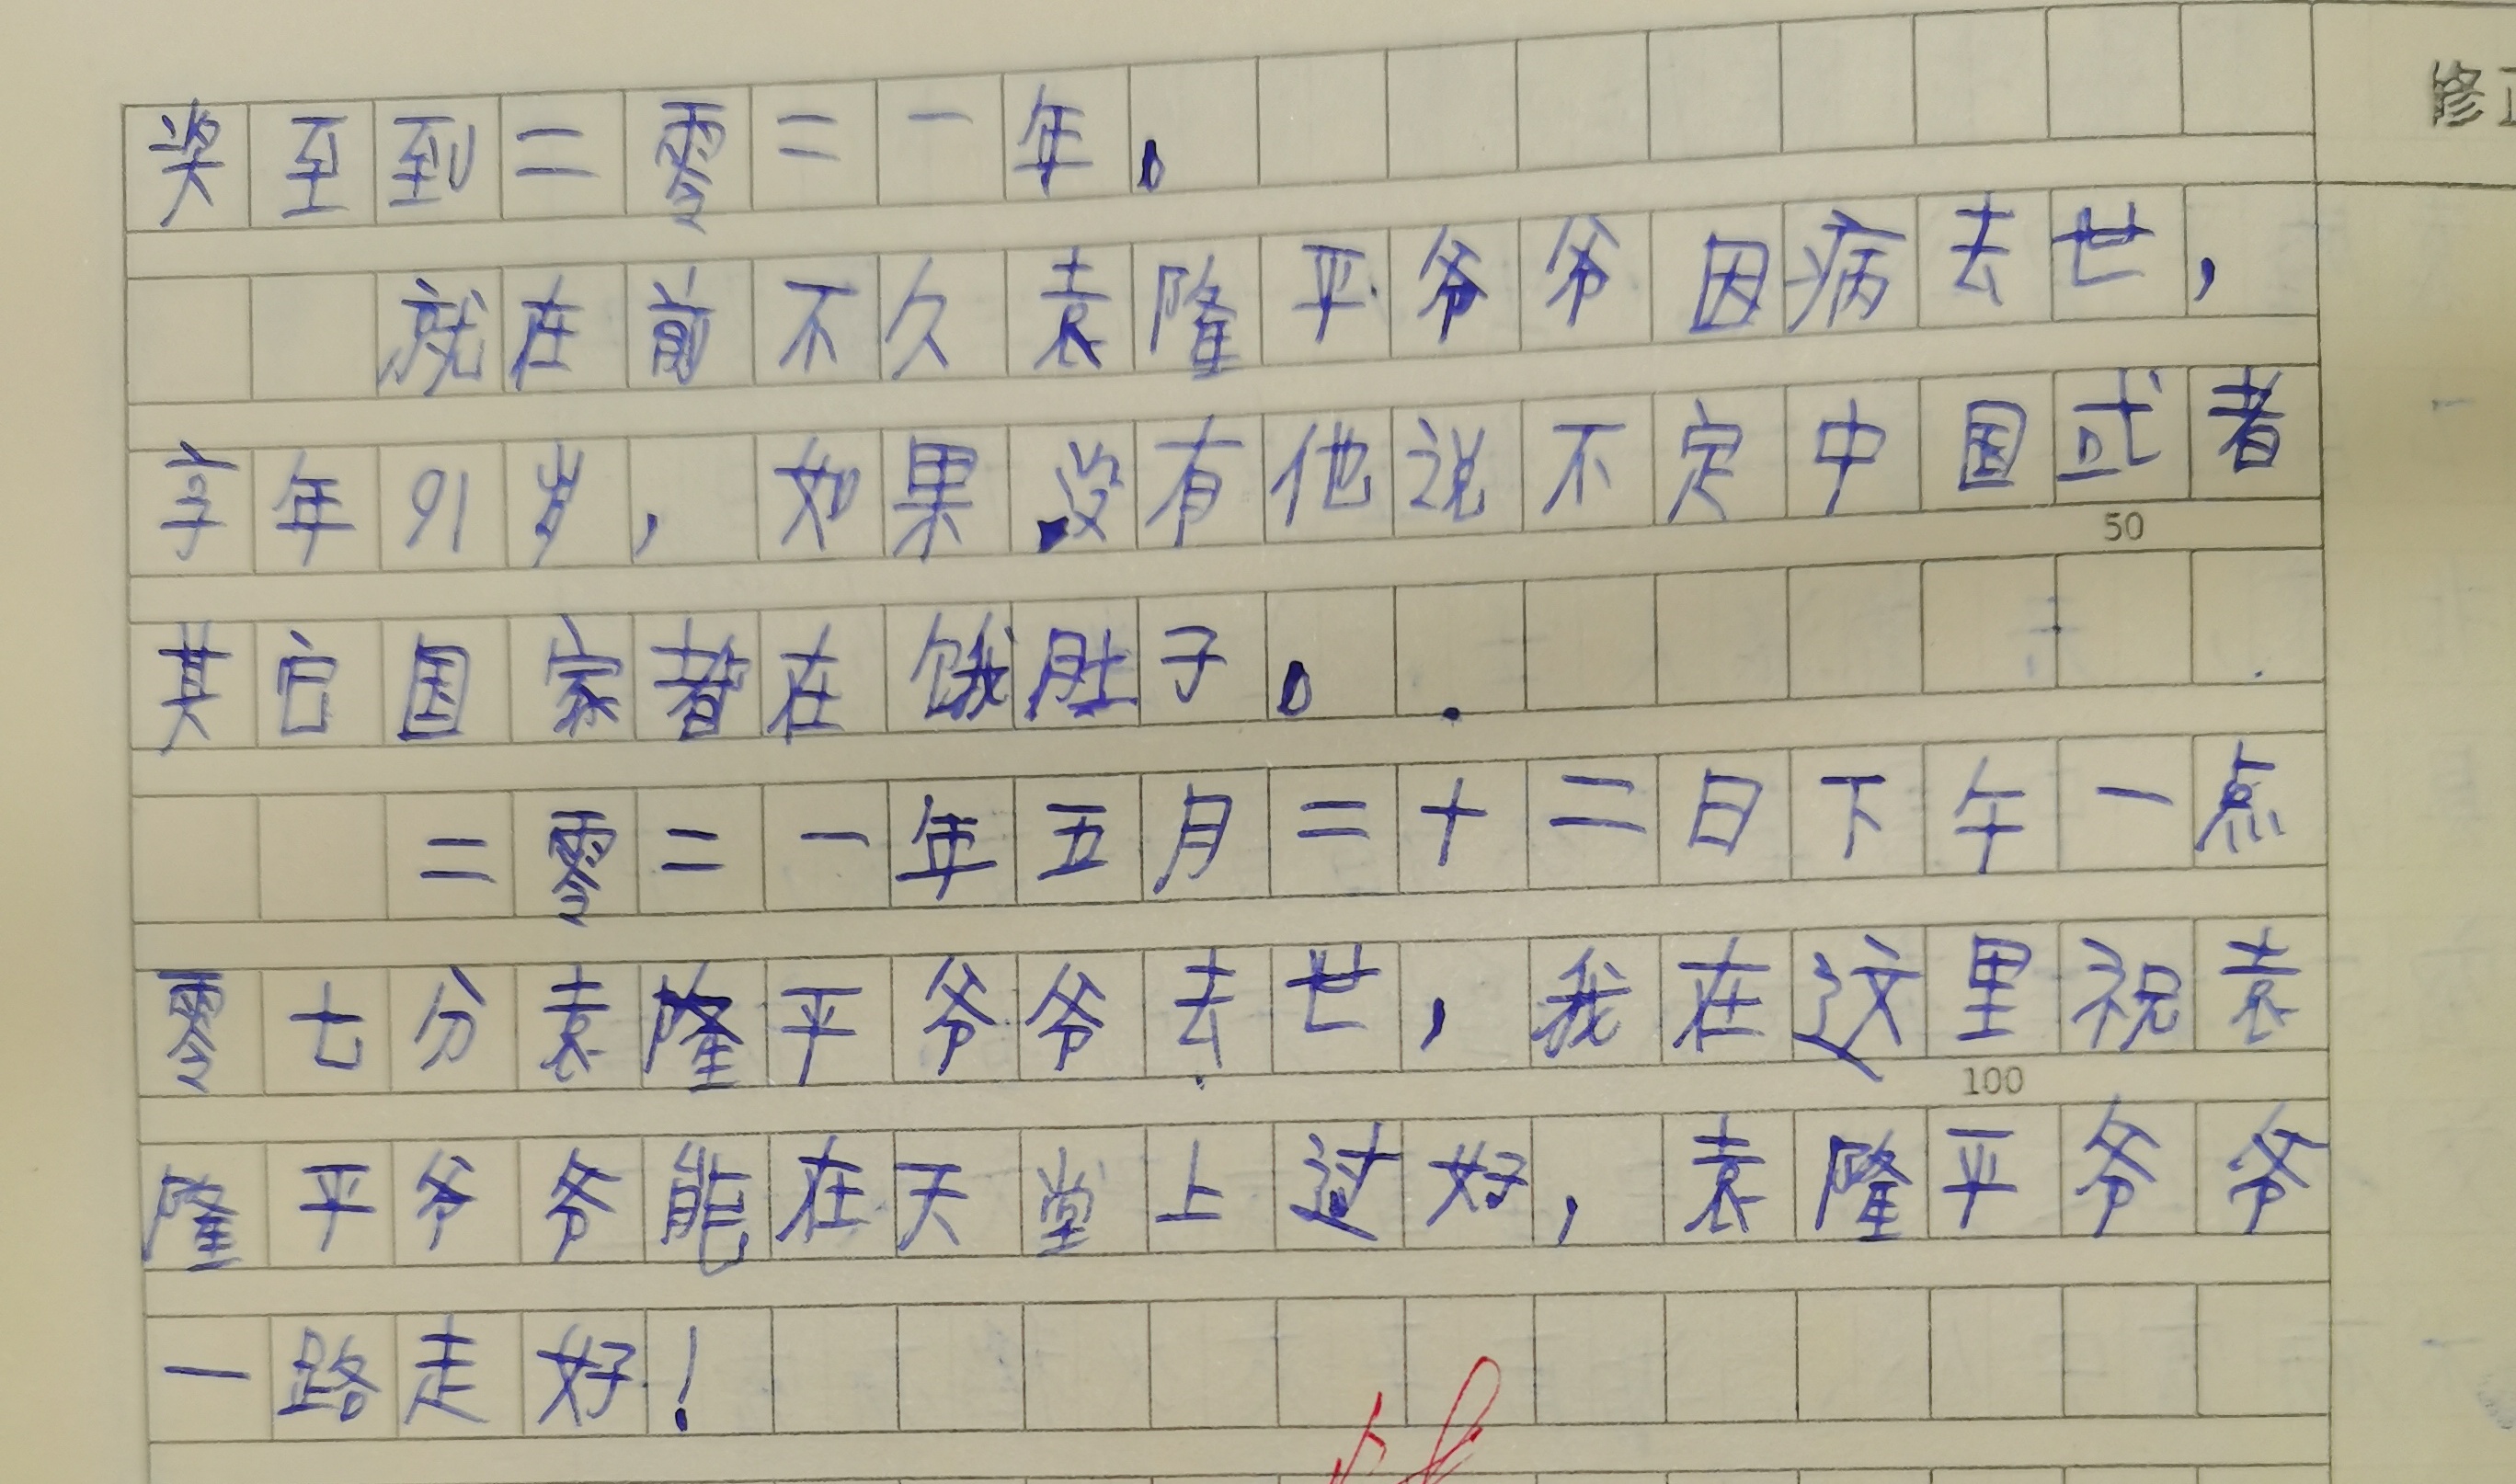 奖至到二零二一年。
修正
就在前不久袁隆平爷爷因病去世，
享年91岁，如果没有他说不定中国或者
50
其它国家都在饿肚子。
二零二一年五月二十二日下午一点
零七分袁隆平爷爷去世，我在这里祝袁
100
隆平爷爷能在天堂上过好，袁隆平爷爷
一路走好！